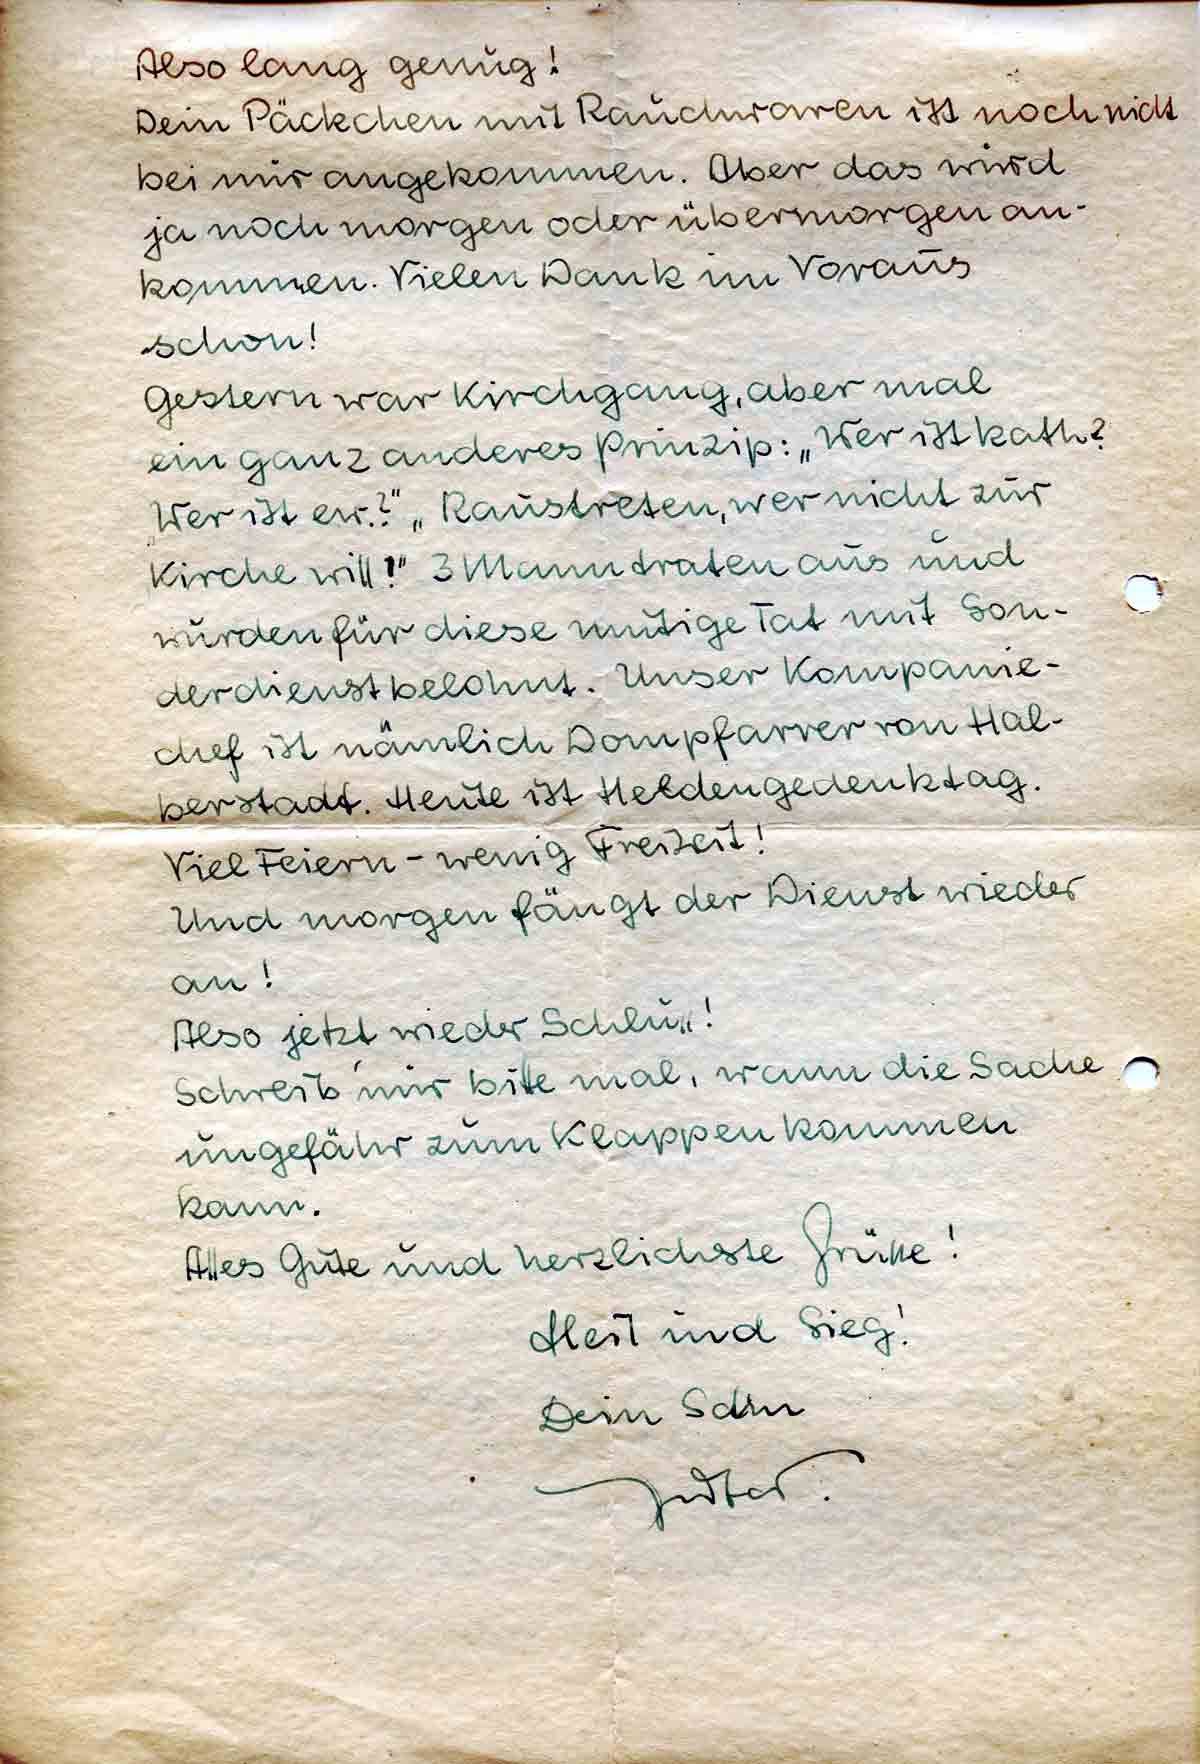 Also lang genug!
Dein Päckchen mit Rauchwaren ist noch nicht
bei mir angekommen. Aber das wird
ja noch morgen oder übermorgen an-
kommen. Vielen Dank im Voraus
schon!
Gestern war Kirchgang, aber mal
ein ganz anderes Prinzip: „Wer ist kath?
Wer ist ev.?" „Raustreten, wer nicht zur
Kirche will!" 3 Mann traten aus und
wurden für diese mutige Tat mit Son-
derdienst belohnt. Unser Kompanie-
chef ist nämlich Dompfarrer von Hal-
berstadt. Heute ist Heldengedenktag.
Viel Feiern – wenig Freizeit!
Und morgen fängt der Dienst wieder
an!
Also jetzt wieder Schluß!
Schreib' mir bitte mal, wann die Sache
ungefähr zum Klappen kommen
kann.
Alles Gute und herzlichste Grüße!
Heil und Sieg!
Dein Sohn